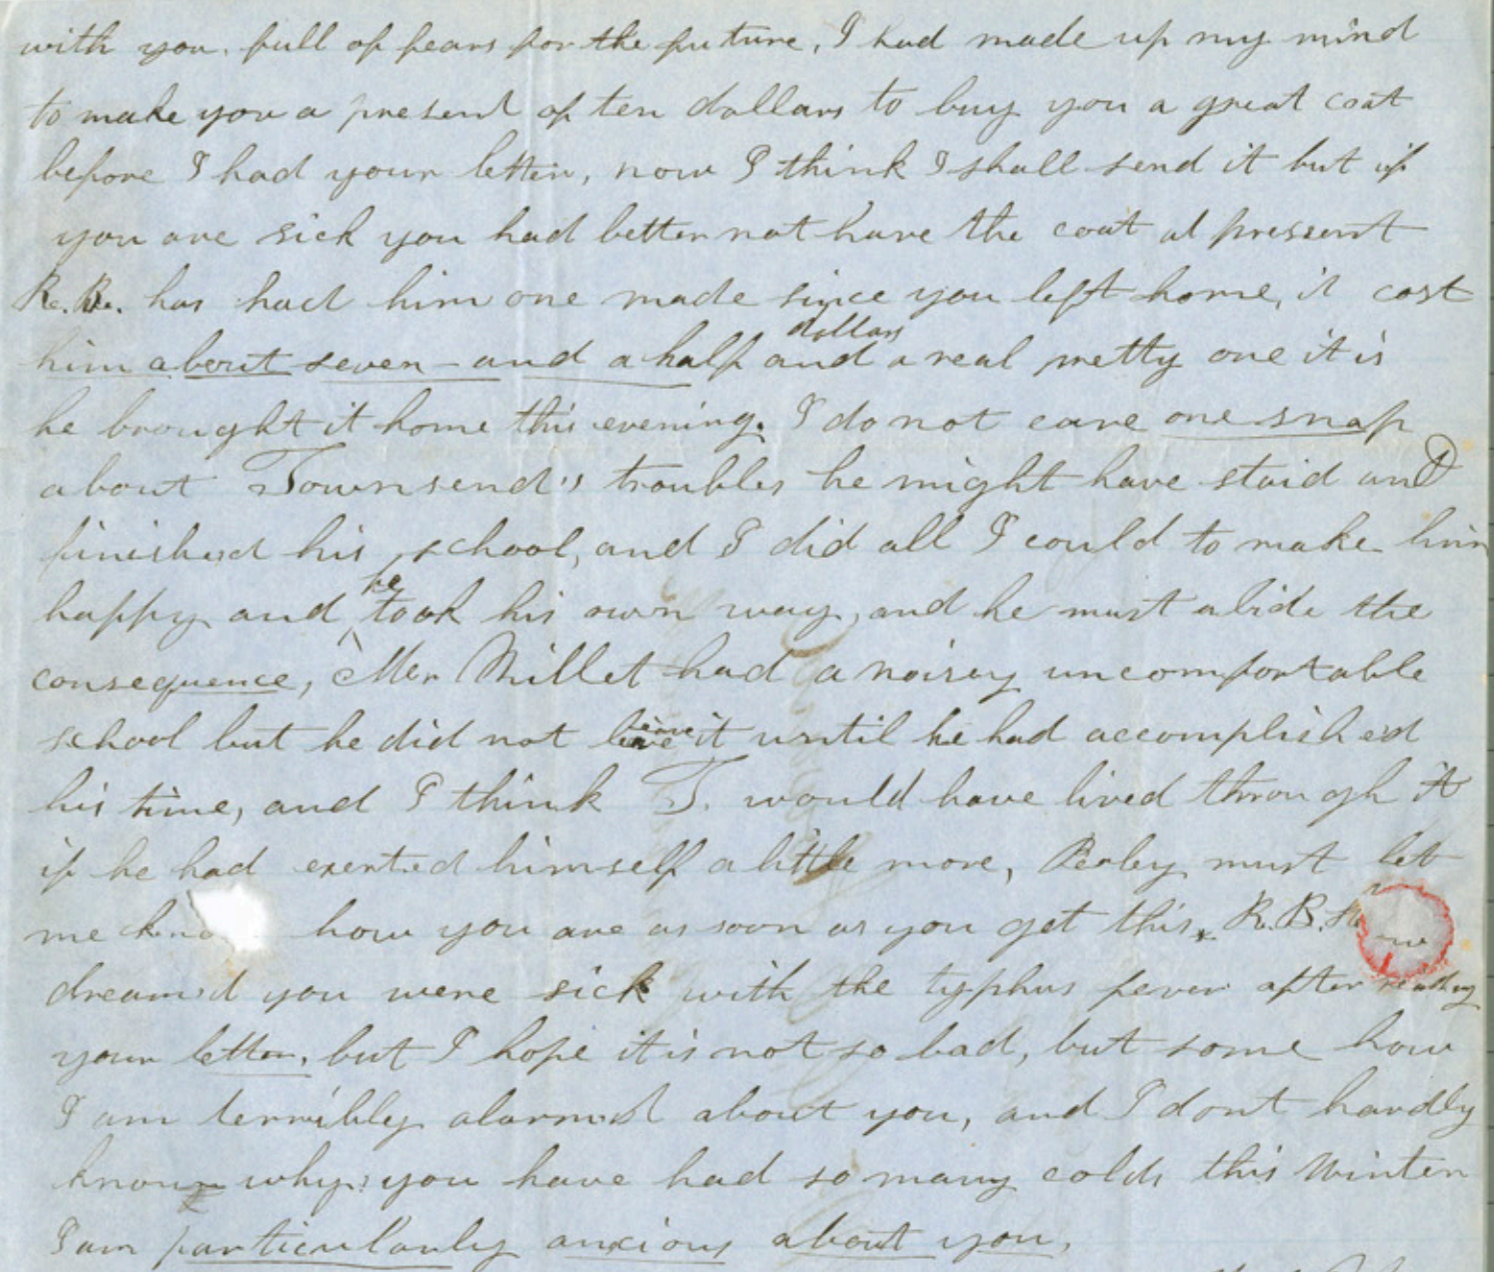 with you. full of fears for the future, I had made up my mind
to make you a present of ten dollars to buy you a great coat
before I had your letter, now I think I shall send it but if
you are sick you had better not have the coat at pressent
R. B. has had him one made since you left home, it cost
him about seven - and a half dollars and a real pretty one it is
he brought it home this evening. I do not care one snap
about Townsend's troubles he might have staid and
finished his school, and I did all I could to make him
happy and he took his own way, and he must abide the
consequence, Mr Millet had a noisey uncomfortable
school but he did not leave it until he had accomplished
his time, and I think T. would have lived through it
if he had exerted himself a little more, Perley must let
me know how you are as soon as you get this. R. B.
dreamed you were sick with the typhus fever after reading
your letter, but I hope it is not so bad, but some how
I am terribly alarmed about you, and I dont hardly
know why: you have had so many colds this Winter
I am particularly anxious about you,